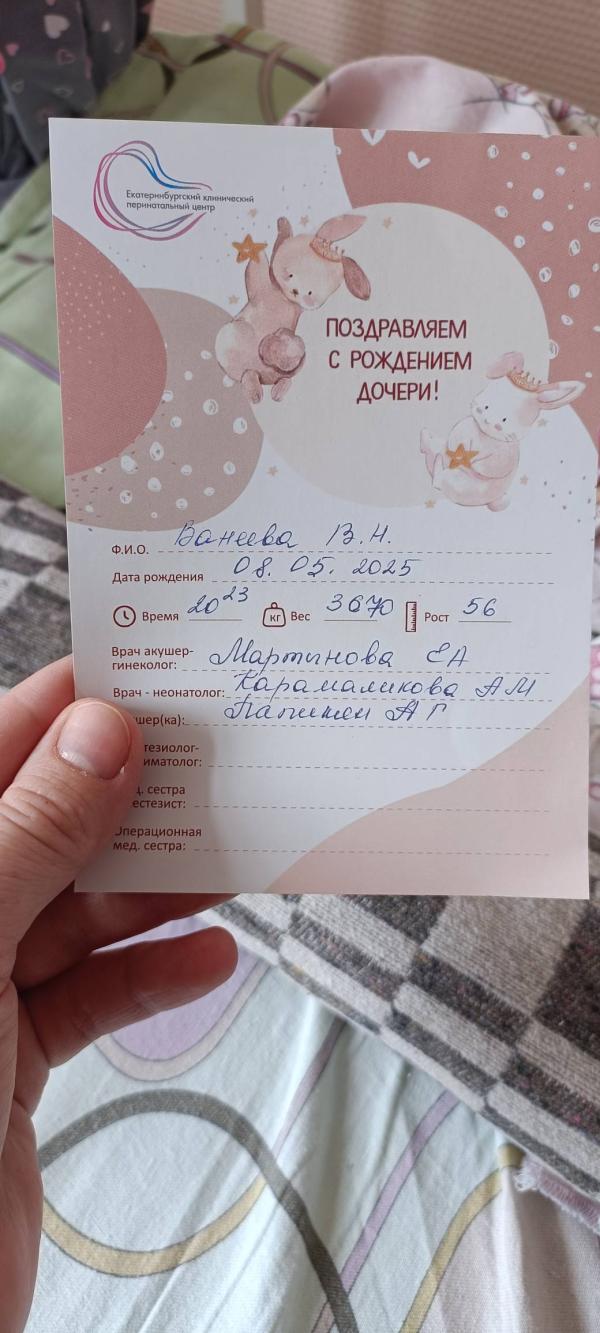 Екатеринбургский клинический
перинатальный центр
ПОЗДРАВЛЯЕМ
С РОЖДЕНИЕМ
ДОЧЕРИ!
Ф.И.О. Ванеева В.Н.
Дата рождения 08.05.2025
Время 20 23 кг Вес 3670 Рост 56
Врач акушер-
гинеколог: Мартынова ЕА
Врач - неонатолог: Карамаликова АМ
шер(ка): АГ
тезиолог-
иматолог:
д. сестра
естезист:
Операционная
мед. сестра: